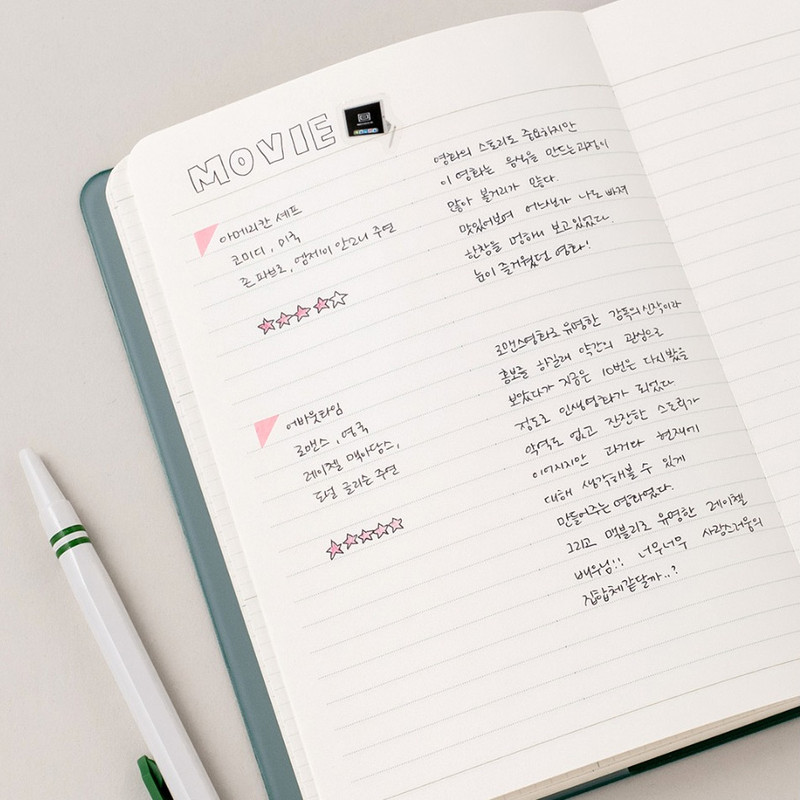 MOVIE
아메리칸 셰프
코미디, 미국
존 파브로, 엠제이 안소니 주연
영화의 스토리도 중요하지만
이 영화는 음식을 만드는 과정이
많아 볼거리가 많다.
맛있어보여 어느샌가 나도 빠져
한창을 멍하니 보고있었다.
눈이 즐거웠던 영화!
어바웃타임
로맨스, 영국
레이첼 맥아담스,
도널 글리슨 주연
로맨스영화로 유명한 감독의 신작이라
홍보를 하길래 약간의 관심으로
보았다가 지금은 10번은 다시봤을
정도로 인생영화가 되었다
악역도 없고 잔잔한 스토리가
이어지지만 과거와 현재에
대해 생각해볼 수 있게
만들어주는 영화였다.
그리고 맥블리로 유명한 레이첼
배우님!! 너무너무 사랑스러움의
집합체같달까..?